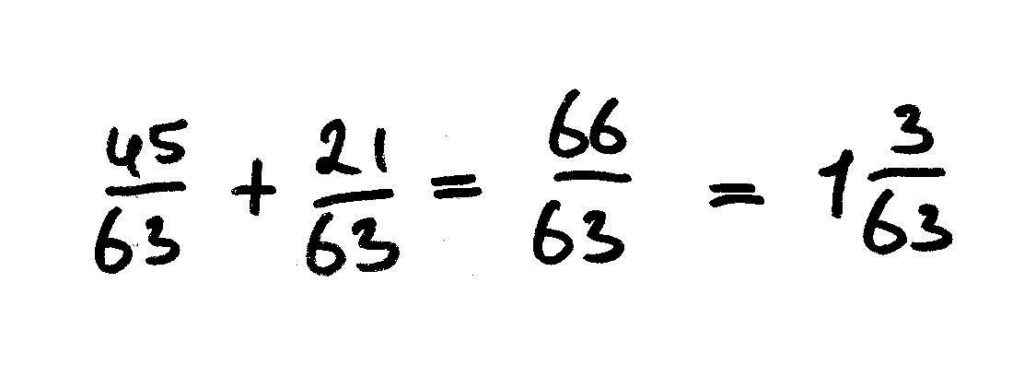 45/63 + 21/63 = 66/63 = 1 3/63